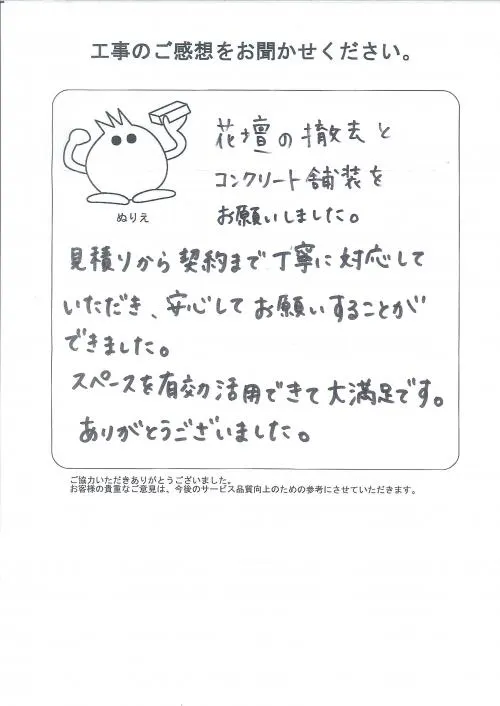 工事のご感想をお聞かせください。
花壇の撤去と
コンクリート舗装を
お願いしました。
ぬりえ
見積りから契約まで丁寧に対応して
いただき、安心してお願いすることが
できました。
スペースを有効活用できて大満足です。
ありがとうございました。
ご協力いただきありがとうございました。
お客様の貴重なご意見は、今後のサービス品質向上のための参考にさせていただきます。